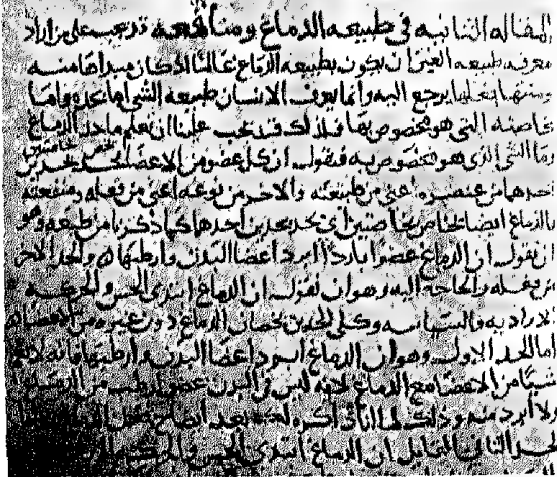 المقاله الثانيه في طبيعه الدماغ ومنافعه قد يجب على من اراد
معرفه طبيعه العين ان يكون بطبيعه الدماغ عالما اذ كان مبداها منه
ومنتهى فعلها يرجع اليه وانما يعرف الانسان طبيعه الشي اما بحده واما
بخاصته التي هو مخصوص بها فلذلك قد يجب علينا ان نعلم ما حد الدماغ
وما الشي الذي هو مخصوص به فنقول ان كل عضو من الاعضا يحد بحدين
احدهما من عنصره اعني من طبيعته والاخر من نوعه اعني من فعله ومنفعته
فالدماغ ايضا بحدين احدهما كما ذكرنا من طبعه وهو
ان نقول ان الدماغ عضو بارد ابرد اعضا البدن وارطبها والحد الاخر
من فعله والحاجه اليه وهو ان نقول ان الدماغ ابتدى الحس والحركه
الاراديه والسياسه وكلى الحدين يخصان الدماغ دون غيره من الاعضا
اما الحد الاول وهو ان الدماغ ابرد اعضا البدن وارطبها فانه
شيا من الاعضا مع الدماغ لانه ليس في البدن عضو ارطب من الدماغ
ولا ابرد منه وذلك لما انا ذاكره بعد
الحد الثاني القايل ان الدماغ ابتدى الحس والحركه